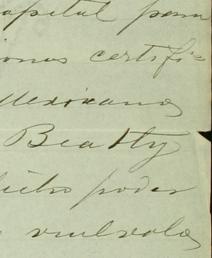 capital para
ionos certifi=
Mexicanos
Beatty
dicho poder